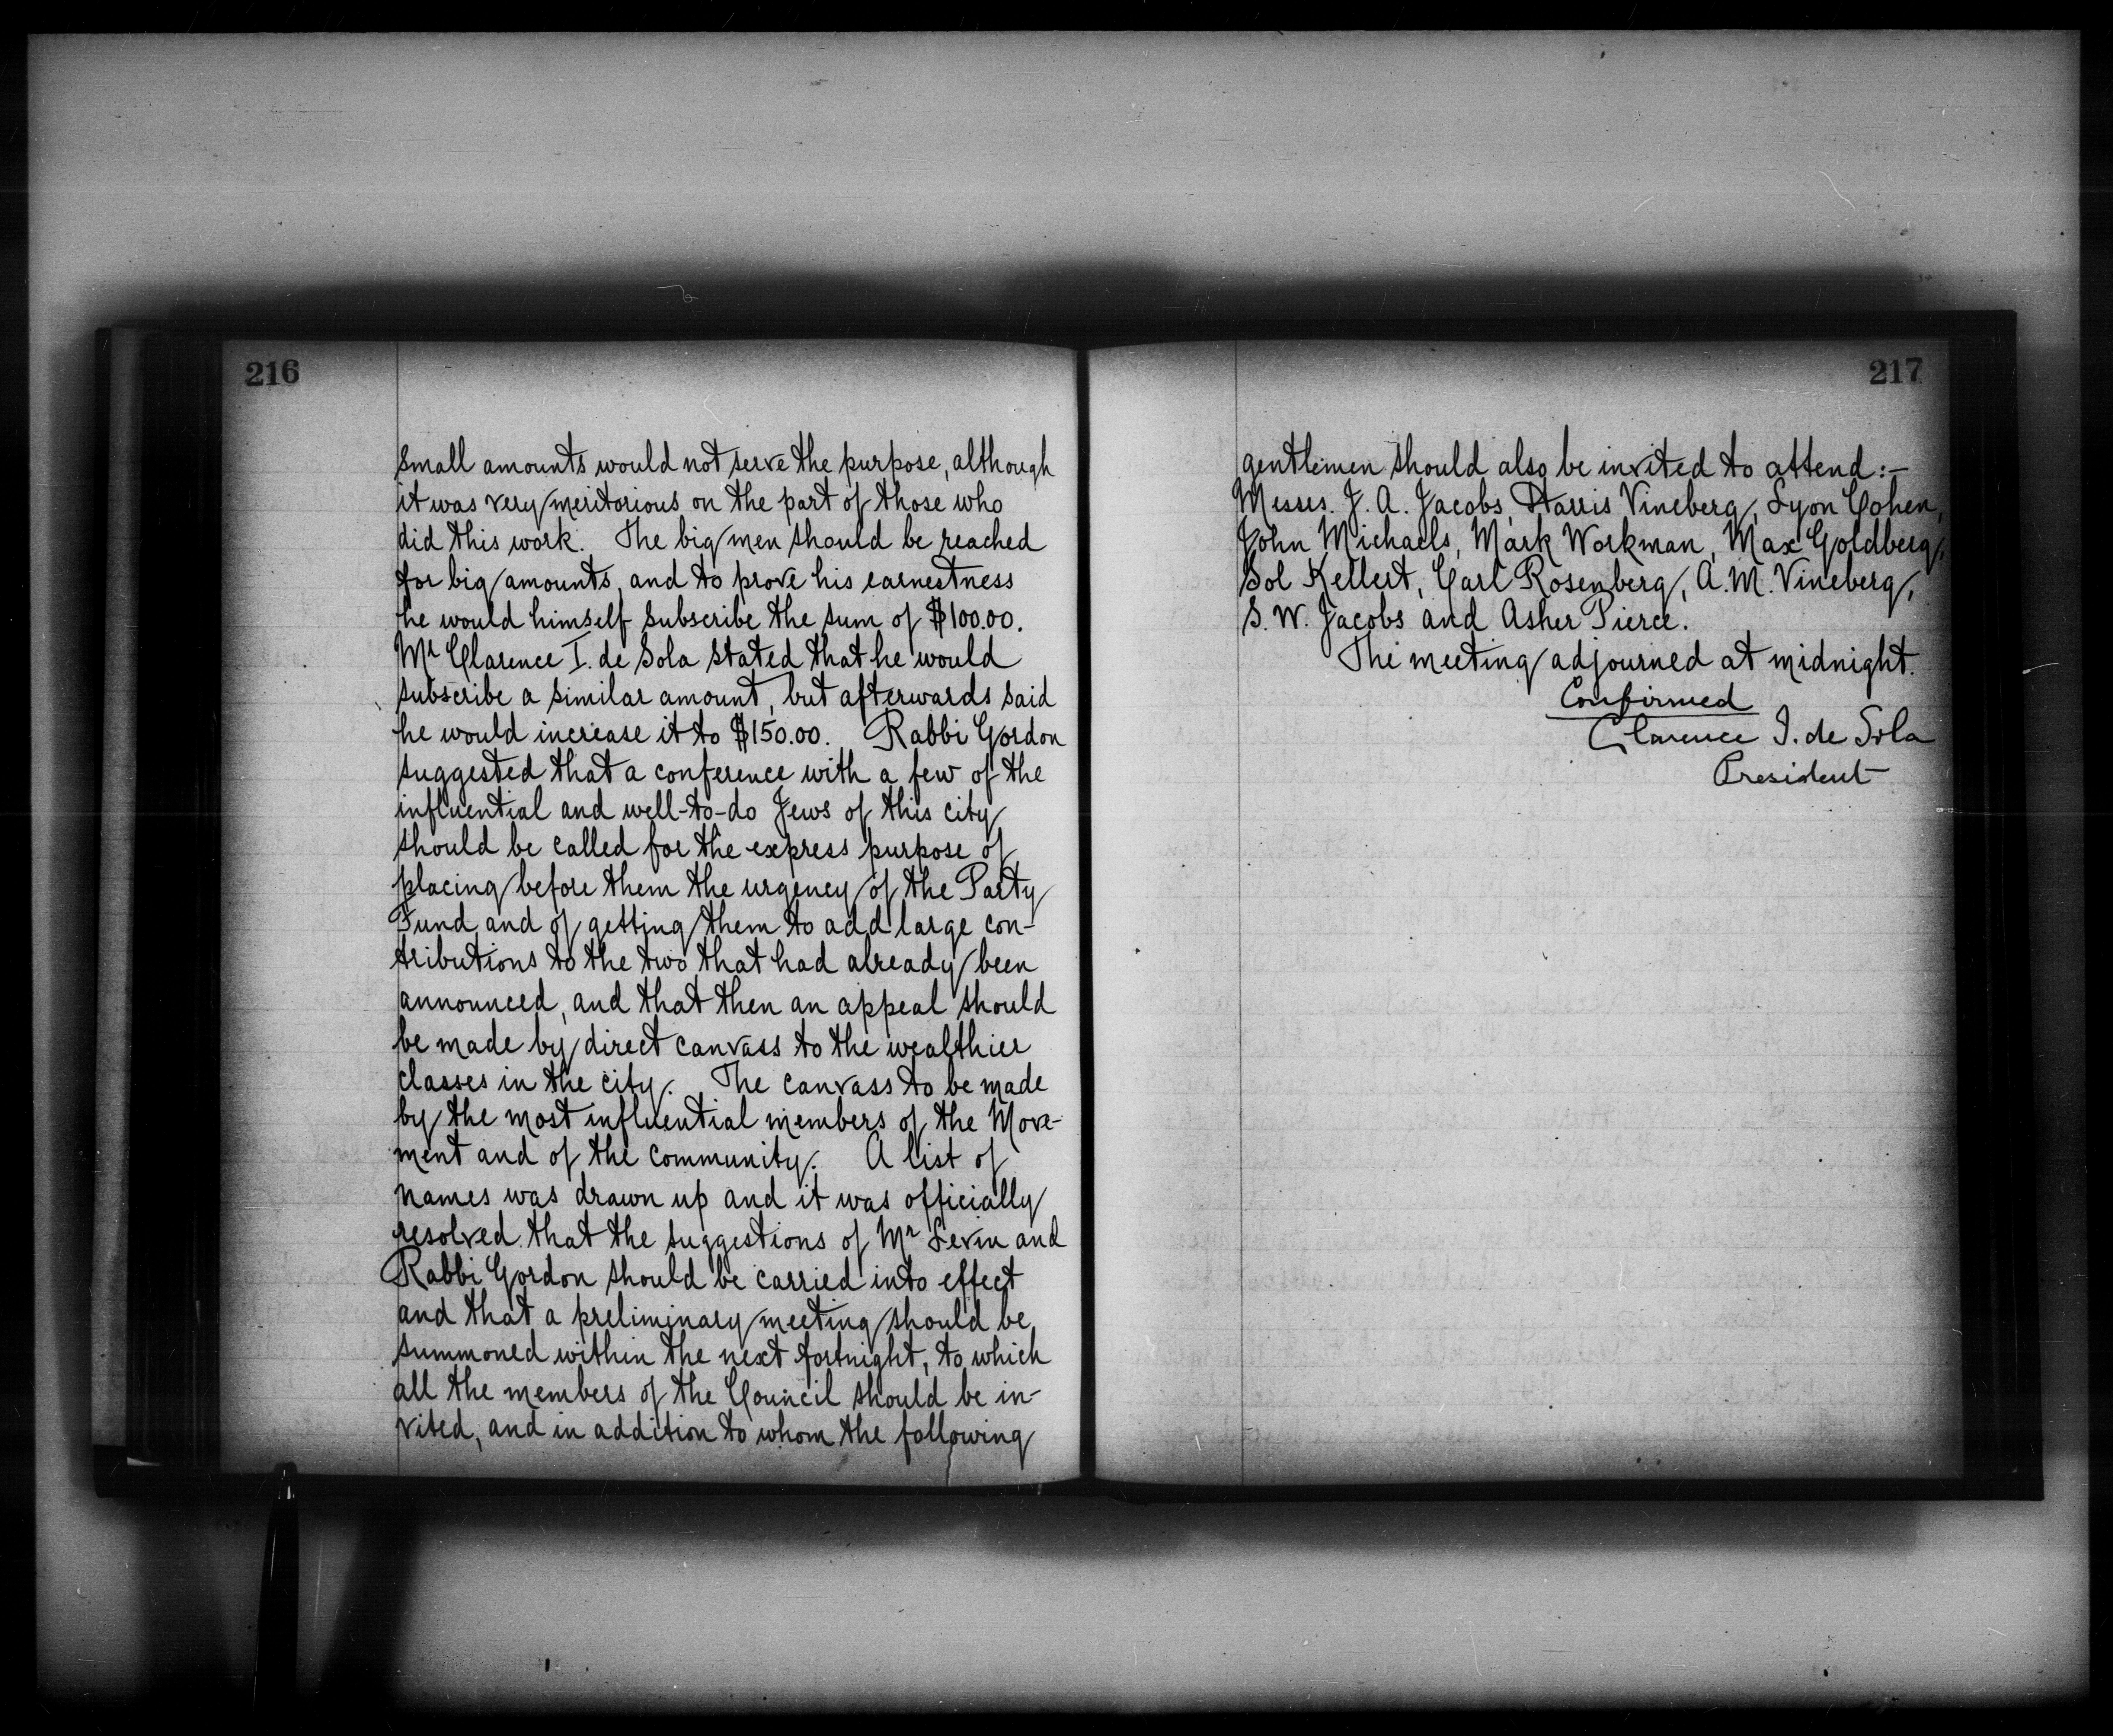 216
small amounts would not serve the purpose, although
it was very meritorious on the part of those who
did this work. The big men should be reached
for big amounts, and to prove his earnestness
he would himself subscribe the sum of $100.00.
Mr Clarence I. de Sola stated that he would
subscribe a similar amount, but afterwards said
he would increase it to $150.00. Rabbi Gordon
suggested that a conference with a few of the
influential and well-to-do Jews of this city
should be called for the express purpose of
placing before them the urgency of the Party
Fund and of getting them to add large con-
tributions to the two that had already been
announced, and that then an appeal should
be made by direct canvass to the wealthier
classes in the city. The canvass to be made
by the most influential members of the Move-
ment and of the community. A list of
names was drawn up and it was officially
resolved that the suggestions of Mr Levin and
Rabbi Gordon should be carried into effect
and that a preliminary meeting should be
summoned within the next fortnight, to which
all the members of the Council should be in-
vited, and in addition to whom the following
217
gentlemen should also be invited to attend:-
Messrs. J. A. Jacobs, Harris Vineberg, Lyon Cohen,
John Michaels, Mark Workman, Max Goldberg,
Sol Kellert, Carl Rosenberg, A. M. Vineberg,
S. W. Jacobs and Asher Pierce.
The meeting adjourned at midnight.
Confirmed
Clarence I. de Sola
President